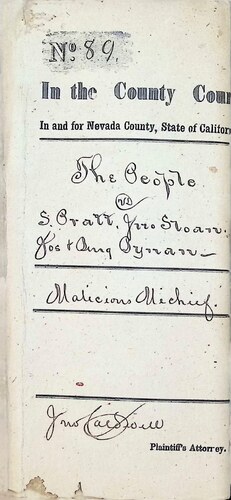 No. 89.
In the County Cour
In and for Nevada County, State of Califor
The People
vs
S. Pratt, Jno Sloan.
Jos & Aug Pynan
Malicious Michief.
Jno Caldwell
Plaintiff's Attorney.